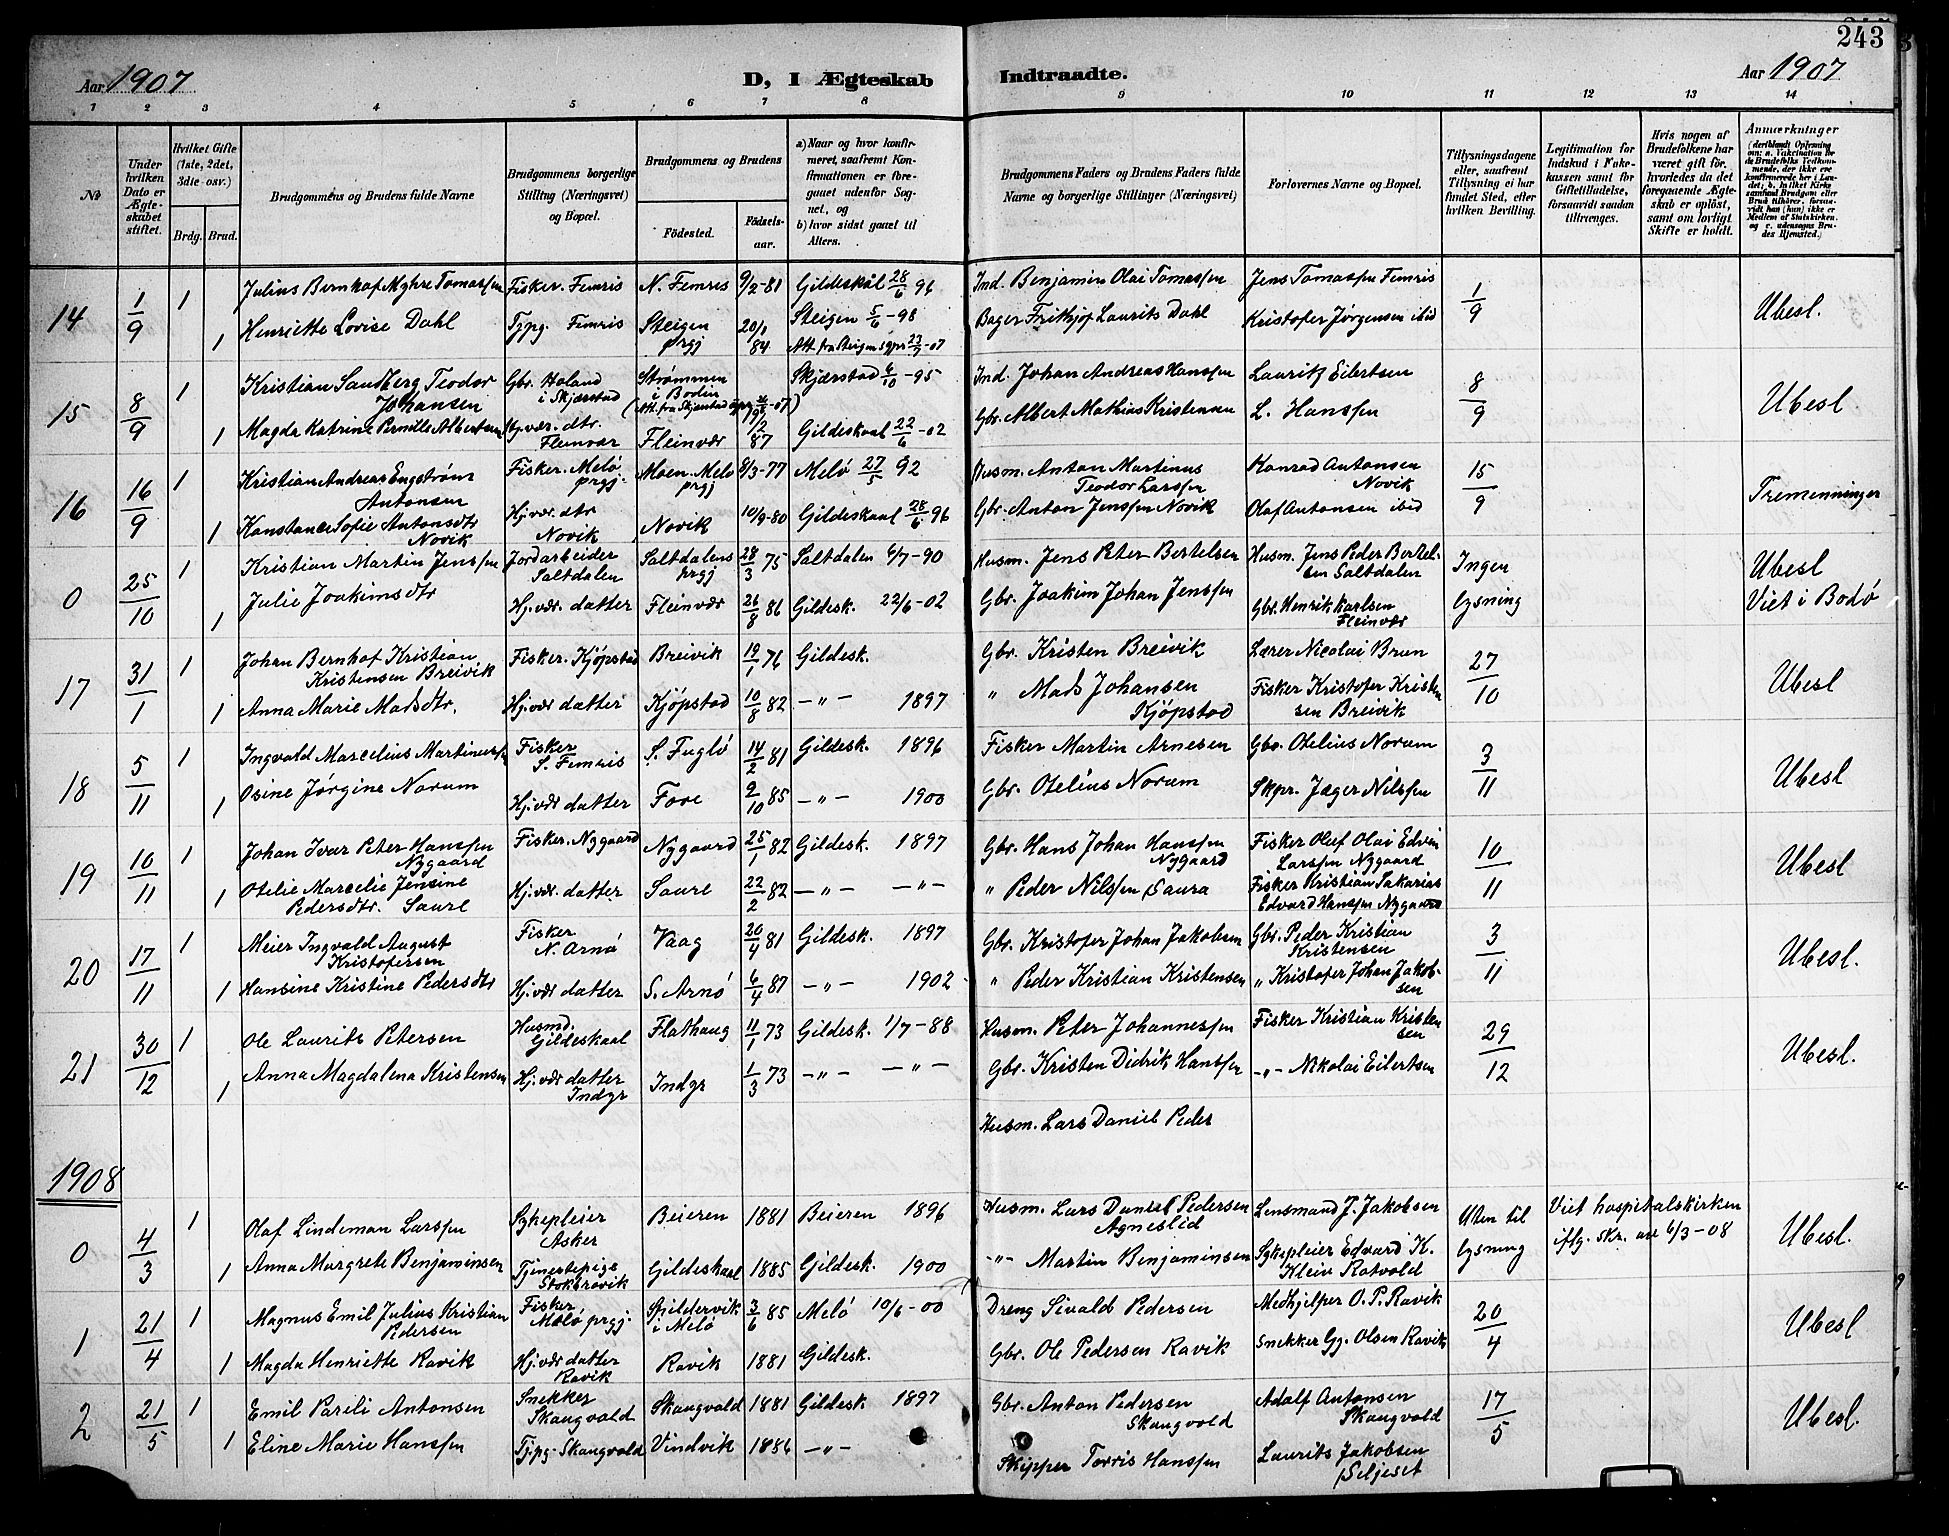 243
Aar 1907
D, I Ægteskab Indtraadte.
Aar 1907
1 2 3 4 5 6 7 8 9 10 11 12 13 14
№
Under hvilken Dato er Ægteskabet stiftet.
Hvilket Gifte (1ste, 2det, 3die osv.)
Brdg. Brud.
Brudgommens og Brudens fulde Navne
Brudgommens borgerlige Stilling (Næringsvei) og Bopæl.
Brudgommens og Brudens
Fødested. Fødselsaar.
a) Naar og hvor konfirmeret, saafremt Konfirmationen er foregaaet udenfor Sognet, og
b) hvor sidst gaaet til Alters.
Brudgommens Faders og Brudens Faders fulde Navne og borgerlige Stillinger (Næringsvei)
Forlovernes Navne og Bopæl.
Tillysningsdagene eller, saafremt Tillysning ei har fundet Sted, efter hvilken Bevilling.
Legitimation for Indskud i Enkekassen samt for Giftetilladelse, forsaavidt saadan tiltrænges.
Hvis nogen af Brudefolkene har været gift før, hvorledes da det foregaaende Ægteskab er opløst, samt om lovligt Skifte er holdt.
Anmærkninger
14 1/9 1 Julius Bernhof Myhre Tomassen Fisker. Femris N. Femris 9/2-81 Gildeskål 28/6 96 Ind. Benjamin Olai Tomassen Jens Tomassen Femris 1/9 Ubesl.
1 Henriette Lovise Dahl Tjpg. Femris Steigen prgj 20/1 84 Steigen 5/6-98 Bager Fritjof Laurits Dahl Kristofer Jørgensen ibid
Att. fra Steigen sgpr 23/7-07
15 8/9 1 Kristian Sandberg Teodor Johansen Gbr. Høland i Skjærstad Strømmen i Bodin Skjærstad 6/10-95 Ind. Johan Andreas Hanssen Lauritz Eilertsen 8/9 Ubesl
1 Magda Katrine Pernille Albertsen Hj.vær. dtr. Fleinvær Fleinvær 1/2 87 Gildeskaal 22/6-02 Gbr. Albert Mathias Kristensen L. Hanssen
16 16/9 1 Kristian Andreas Engstrøm Antonsen Fisker. Melø prgj. Moen. Melø prgj 8/3-77 Melø 27/5 92 Husm. Anton Martinus Teodor Larssen Konrad Antonsen Novik 15/9 Tremenninger
1 Konstance Sofie Antonsdtr Novik Hj.vær. dtr Novik Novik 10/9-80 Gildeskaal 28/6 96 Gbr. Anton Jenssen Novik Olaf Antonsen ibid
0 25/10 1 Kristian Martin Jenssen Jordarbeider Saltdalen Saltdalens prgj 28/3 75 Saltdalen 6/7-90 Husm. Jens Peter Bertelsen Husm. Jens Peder Bertelsen Saltdalen Ingen lysning Ubesl Viet i Bodø
1 Julie Joakimsdtr Hj.vær. datter Fleinvær 26/8 86 Gildesk. 22/6-02 Gbr. Joakim Johan Jenssen Gbr. Henrik Karlsen Fleinvær
17 31/1 1 Johan Bernhof Kristian Kristensen Breivik Fisker. Kjøpstad Breivik 19/1 76 Gildesk. Gbr. Kristen Breivik Lærer Nicolai Brun 27/10 Ubesl
1 Anna Marie Madsdtr. Hj.vær datter Kjøpstad 10/8 82 —"— 1897 " Mads Johansen Kjøpstad Fisker Kristofer Kristensen Breivik
18 5/11 1 Ingvald Marcelius Martinussen Fisker S. Femris S. Fuglø 14/2 81 Gildesk. 1896 Fisker Martin Arnesen Gbr. Otelius Norum 3/11 Ubesl
1 Osine Jørgine Norum Hj.vær datter Fore 2/10 85 —"— 1900 Gbr. Otelius Norum Skpr. Jæger Nilssen
19 10/11 1 Johan Ivar Peter Hanssen Nygaard Fisker. Nygaard Nygaard 25/1 82 Gildesk. 1897 Gbr. Hans Johan Hanssen Nygaard Fisker Oluf Olai Edvin Larssen Nygaard 10/11 Ubesl
1 Otelie Marcelie Jensine Pedersdtr. Saure Hj.vær. datter Saure 22/2 82 —"— —"— " Peder Nilssen Saura Fisker Kristian Sakarias Edvard Hanssen Nygaard
20 17/11 1 Meier Ingvald August Kristofersen Fisker N. Arnø Vaag 20/4 81 Gildesk. 1897 Gbr. Kristofer Johan Jakobsen Gbr. Peder Kristian Kristensen 3/11 Ubesl.
1 Hansine Kristine Pedersdtr Hj.vær datter S. Arnø 6/4 87 —"— 1902 " Peder Kristian Kristensen " Kristofer Johan Jakobsen
21 30/12 1 Ole Laurits Petersen Husmd. Gildeskaal Flathaug 11/1 73 Gildesk. 1/7-88 Husm. Peter Johannessen Fisker Kristian Kristensen 29/12 Ubesl.
1 Anna Magdalena Kristensen Hj.vær datter Indgr Indgr 1/3 73 —"— —"— Gbr. Kristen Didrik Hanssen —"— Nikolai Eilertsen
Husm. Lars Daniel Peder
1908
0 4/3 1 Olaf Lindeman Larssen Sykepleier Asker Beieren 1881 Beieren 1896 Husm. Lars Daniel Pedersen Agneslid Lensmand J. Jakobsen Uten til lysning Viet hospitalskirken iflg. skr. av 6/3-08 Ubesl.
1 Anna Margrete Benjaminsen Tjenestepige Stokbravik Gildeskaal 1885 Gildesk. 1900 —"— Martin Benjaminsen Sykepleier Edvard K. Kleiv Rotvold
1 21/4 1 Magnus Emil Julius Kristian Pedersen Fisker Melø prgj. Spildervik i Melø 3/6 85 Melø 10/6-00 Dreng Sivald Pedersen Medhjelper O. P. Ravik 20/4 Ubesl
1 Magda Henriette Ravik Hj.vær datter Ravik Ravik 1881 Gildesk. Gbr. Ole Pedersen Ravik Snekker Gg. Olsen Ravik
2 21/5 1 Emil Parili Antonsen Snekker Skaugvold Skaugvold 1881 Gildesk. 1897 Gbr. Anton Pedersen Skaugvold Adalf Antonsen Skaugvold 17/5 Ubesl.
1 Eline Marie Hanssen Tjpg. Skaugvold Vindvik 1886 —"— Skipper Torris Hanssen Laurits Jakobsen Seljeset